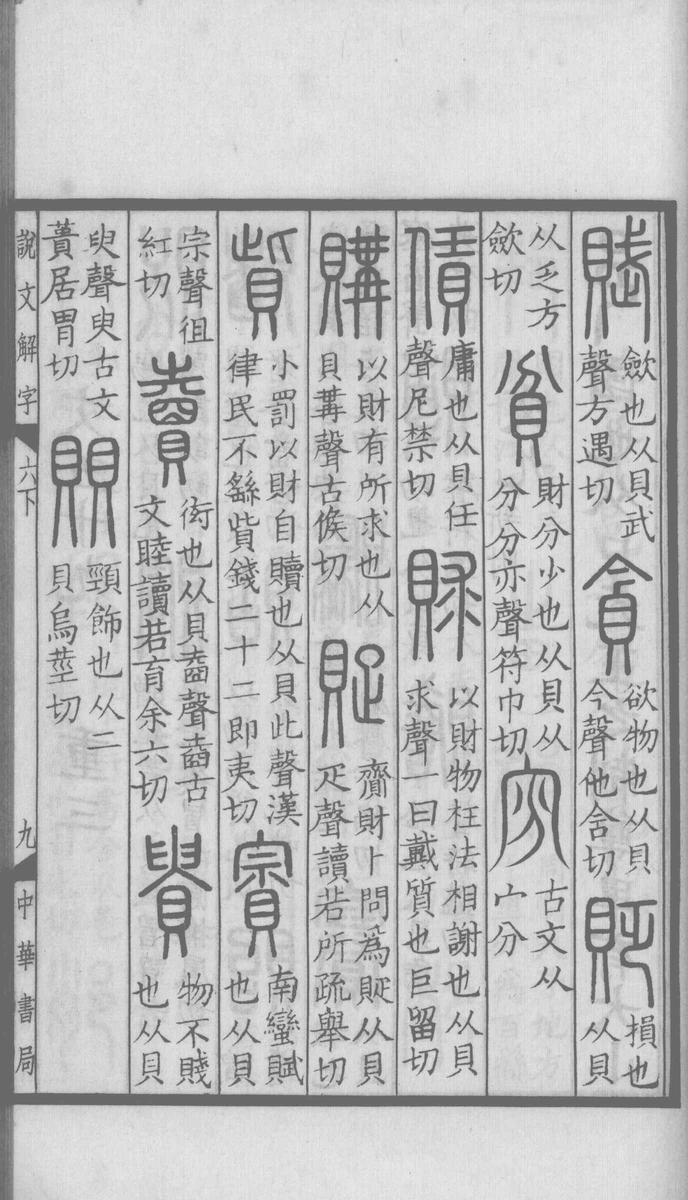 賦斂也从貝武聲方遇切貪欲物也从貝今聲他含切貶損也从貝
从乏方斂切貧財分少也从貝从分分亦聲符巾切𡧋古文从宀分
賃庸也从貝任聲尼禁切賕以財物枉法相謝也从貝求聲一曰戴質也巨留切
購以財有所求也从貝冓聲古候切𧵩齎財卜問爲貶从貝疋聲讀若所疏舉切
貲小罰以財自贖也从貝此聲漢律民不繇貲錢二十二即夷切賨南蠻賦也从貝
宗聲徂紅切賣衒也从貝𡍬聲𡍬古文睦讀若育余六切貴物不賤也从貝
臾聲臾古文蕢居胃切賏頸飾也从二貝烏莖切
說文解字 六下 九 中華書局